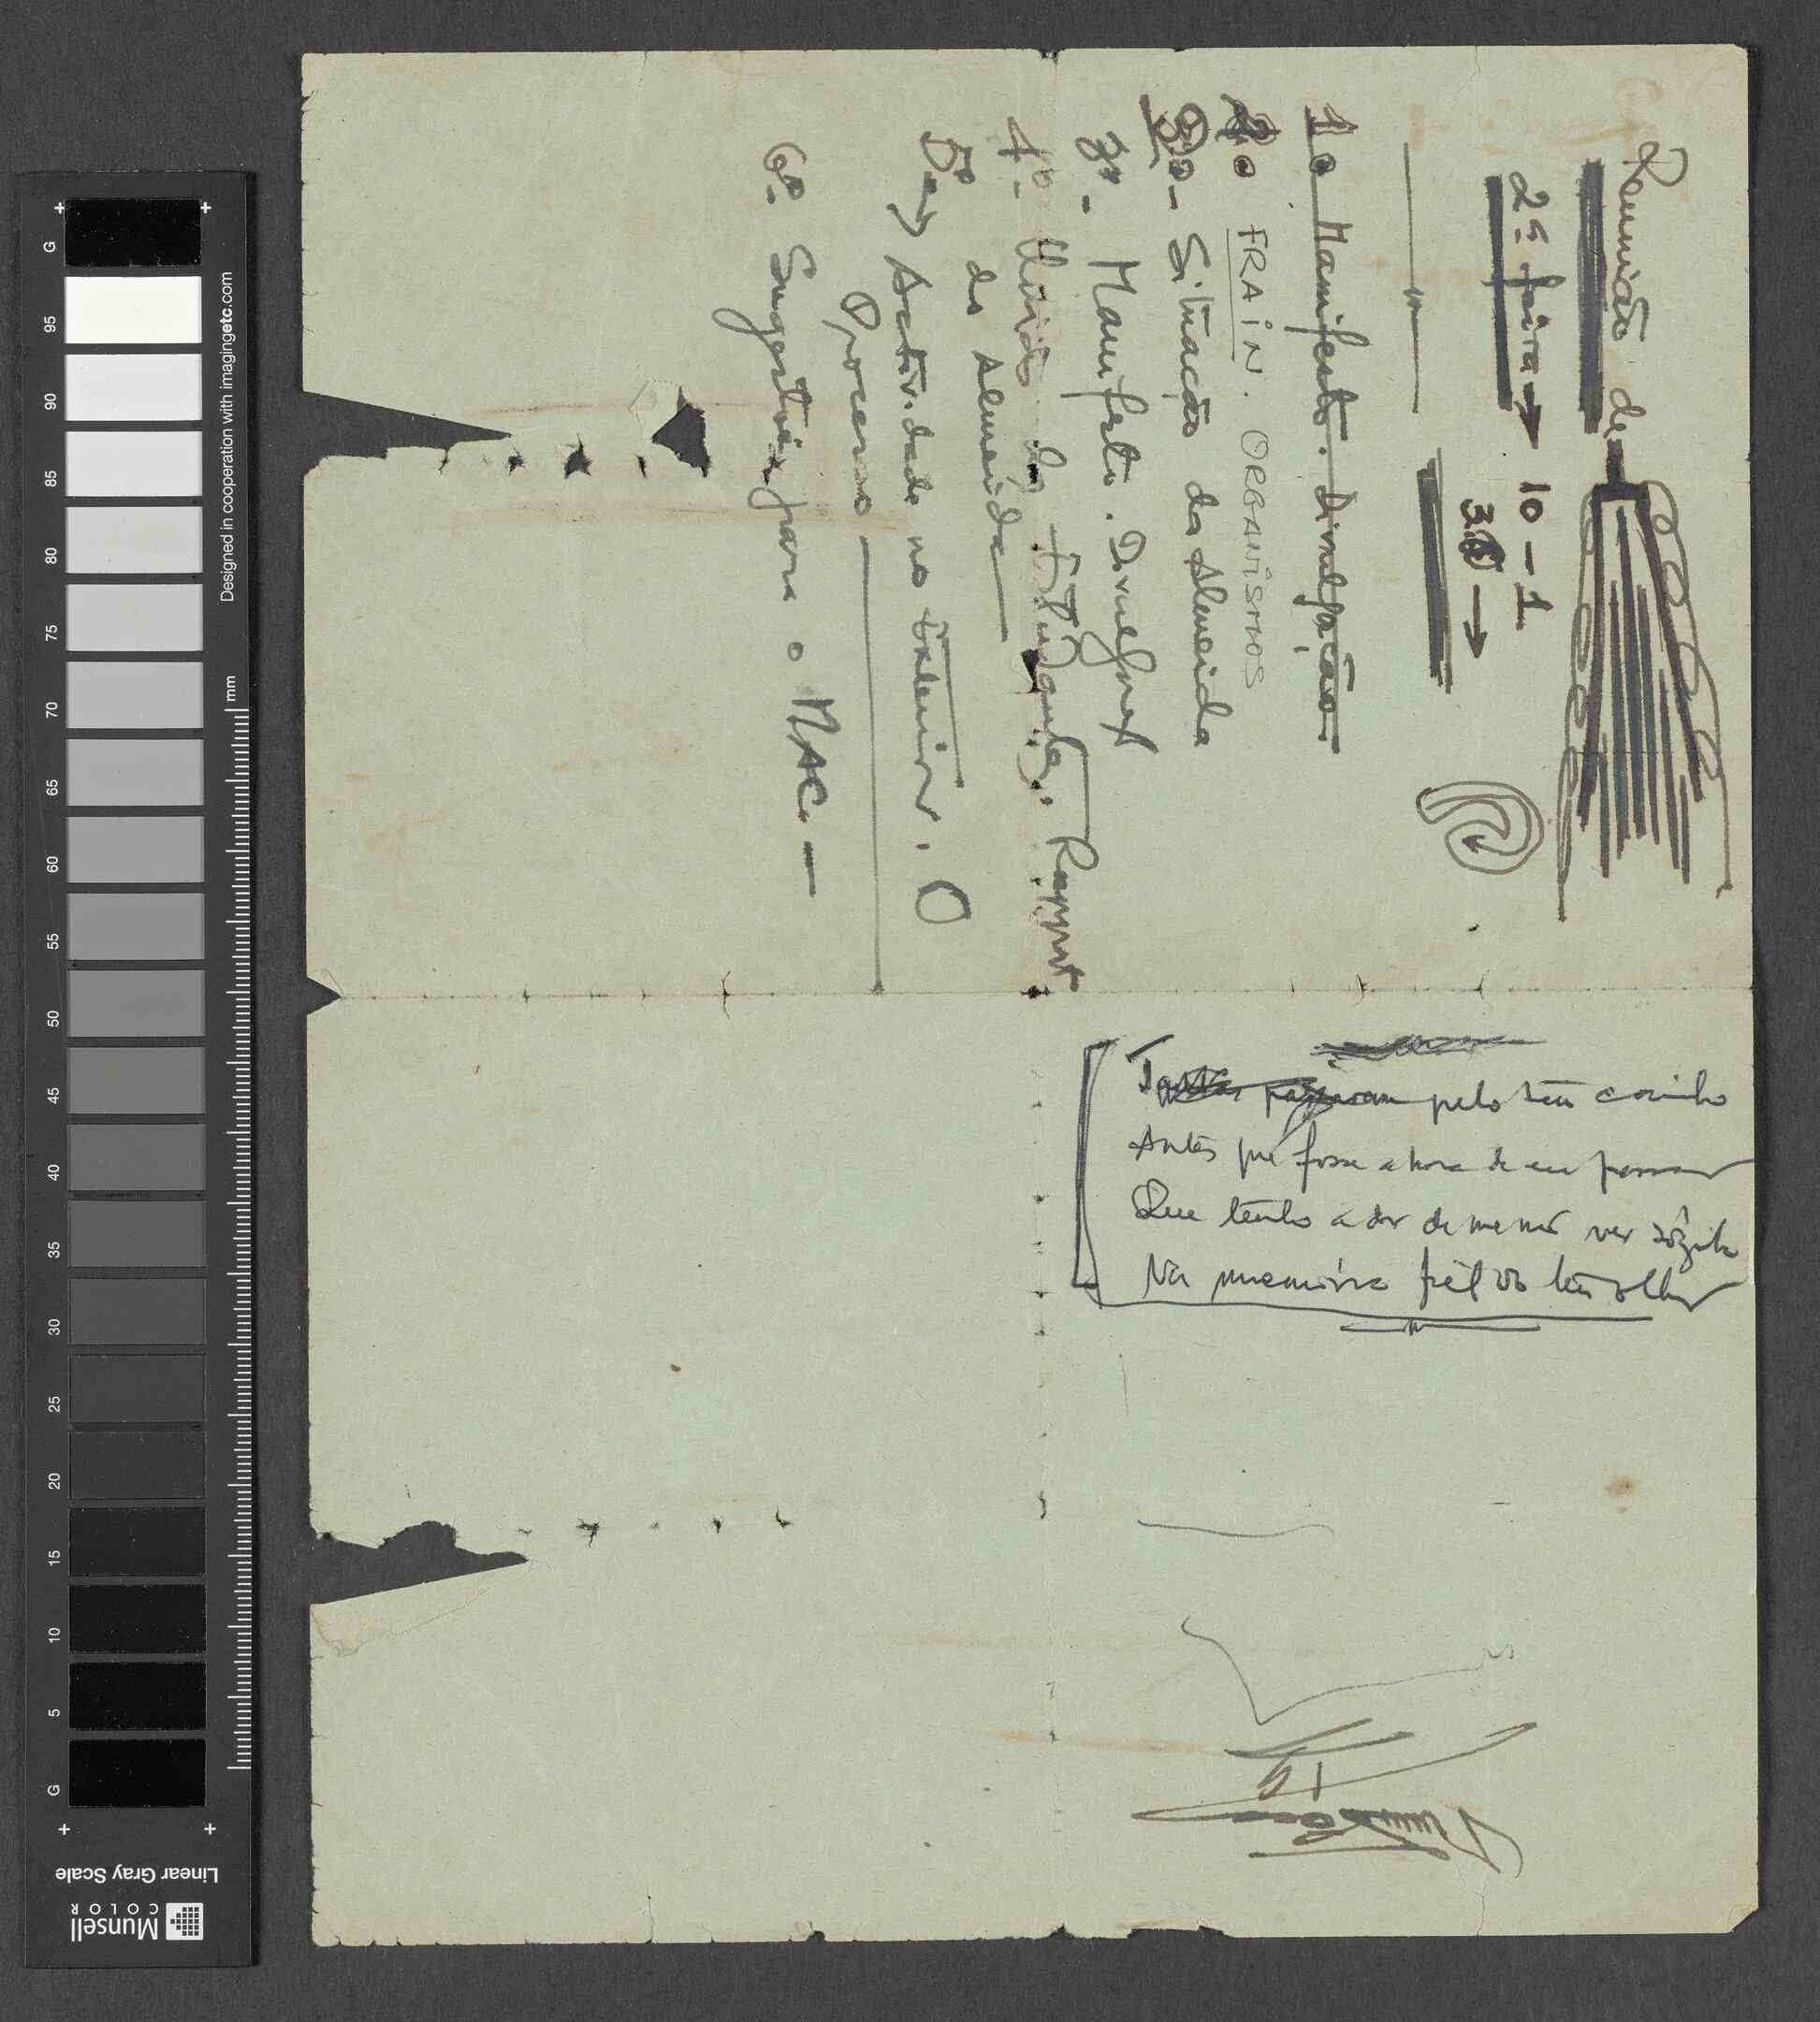 Reunião de
2ª feira → 10-1
3.6 →
1º Manifesto. Divulgação
2º FRAIN. ORGANISMOS
2º- Situação do Almeida
3º- Manifesto. Divulgação
4º- do Estudante. Rapport
do Almeida
5º Actividade no Exterior. O
Processo
6º- Sugestões para o MAC.
pelo teu caminho
Antes que fosse a hora de eu passar
Que tenho a dor de me não ver sózinho
Na memória fiel do teu olhar
G
95
90
85
80
75
70
65
60
55
50
45
40
35
30
25
20
15
10
5
G
mm
Designed in cooperation with imagingetc.com
Linear Gray Scale
Munsell
COLOR